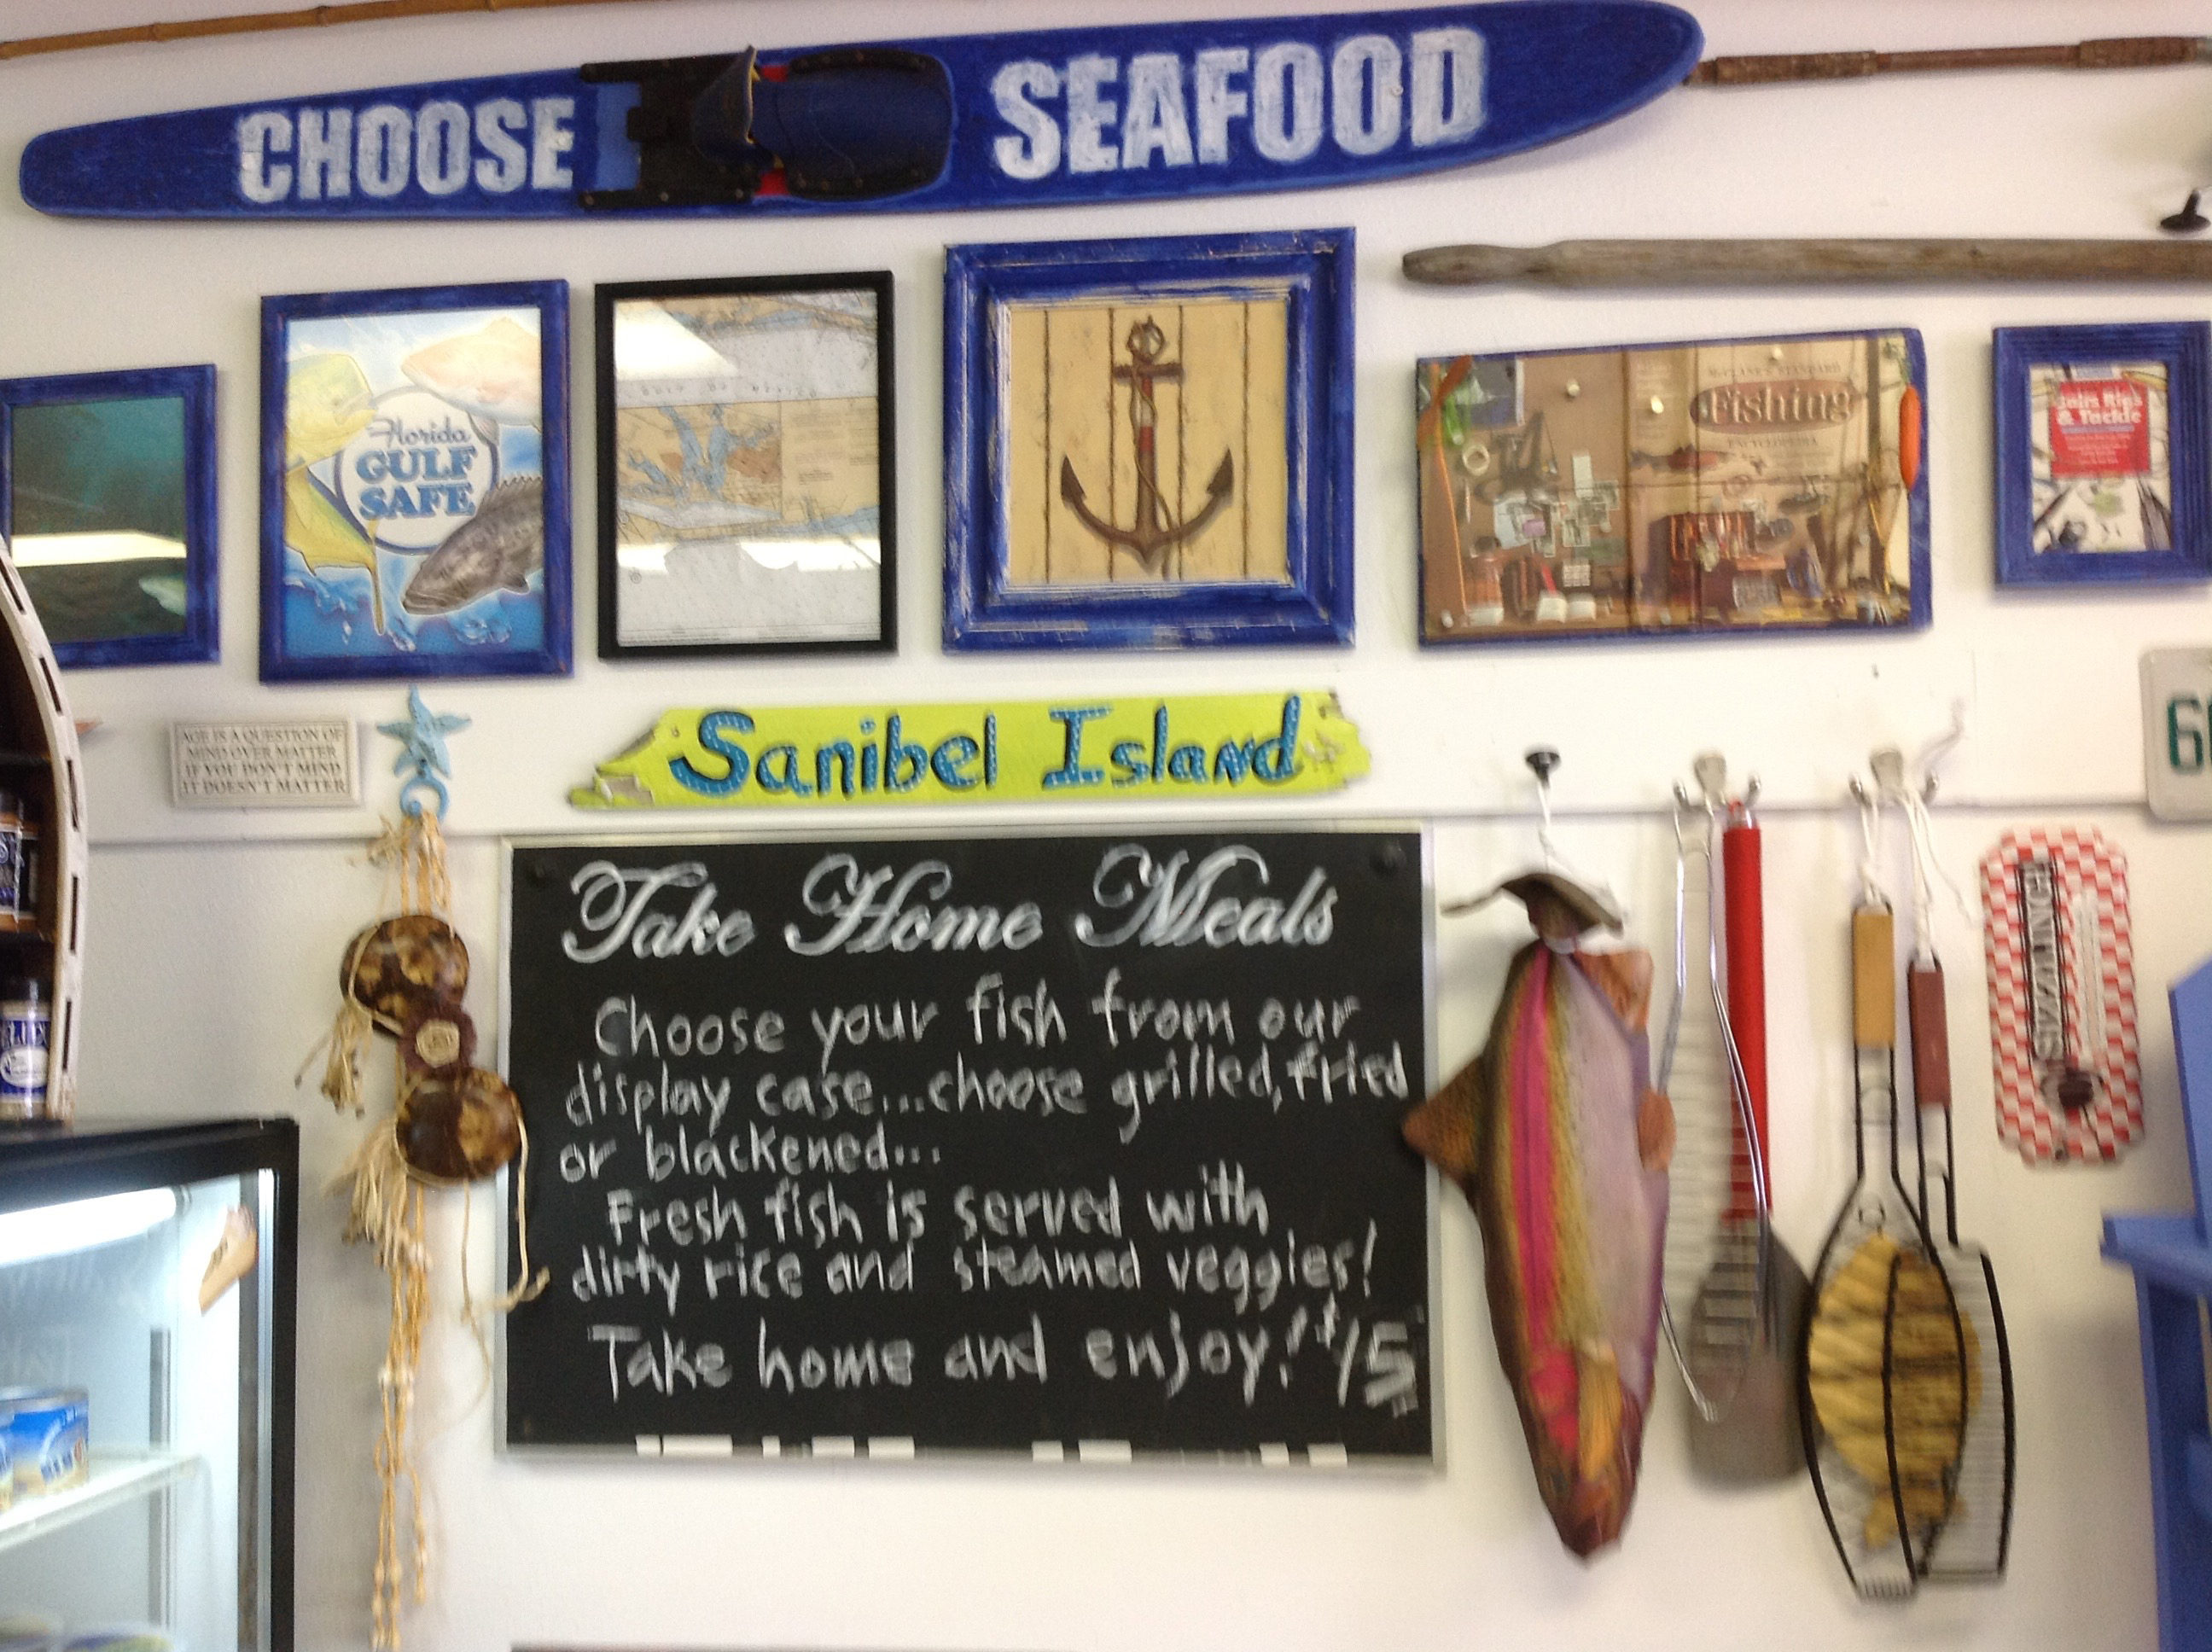 CHOOSE SEAFOOD
Florida
GULF
SAFE
GULF OF MEXICO
McCLANE'S STANDARD
Fishing
ENCYCLOPEDIA
& Tackle
Sanibel Island
AGE IS A QUESTION OF
MIND OVER MATTER
IF YOU DON'T MIND
IT DOESN'T MATTER
Take Home Meals
Choose your fish from our
display case...choose grilled, fried
or blackened...
Fresh fish is served with
dirty rice and steamed veggies!
Take home and enjoy! $15
SIZZLING